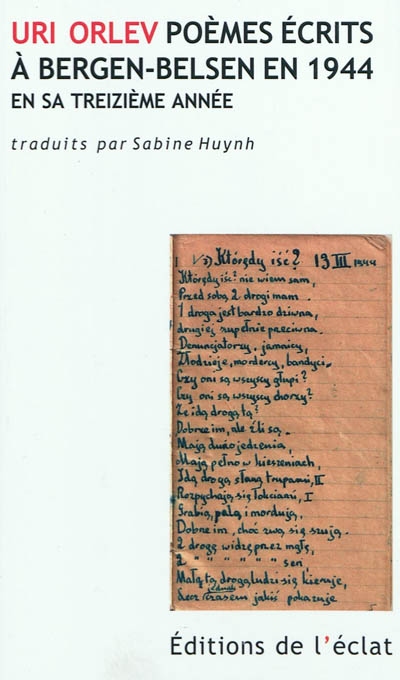 URI ORLEV POÈMES ÉCRITS
À BERGEN-BELSEN EN 1944
EN SA TREIZIÈME ANNÉE
traduits par Sabine Huynh
Którędy iść? 13 III 1944
Którędy iść? nie wiem sam,
Przed sobą 2 drogi mam.
1 droga jest bardzo dziwna,
drugiej zupełnie przeciwna.
Denuncjatorzy, jamnicy,
Złodzieje, mordercy, bandyci.
Czy oni są wszyscy głupi?
Czy oni są wszyscy chorzy?
Że idą drogą tą?
Dobrze im, ale źli są.
Mają dużo jedzenia,
Mają pełno w kieszeniach,
Idą drogą słaną trupami, II
Rozpychają się łokciami, I
Grabią, palą i mordują,
Dobrze im, choć zwą się szują.
2 drogę widzę przez mgłę,
2 " " " " " sen
Małą tą drogą ludzi się kieruje,
Lecz czasem jakiś pokazuje
Éditions de l'éclat